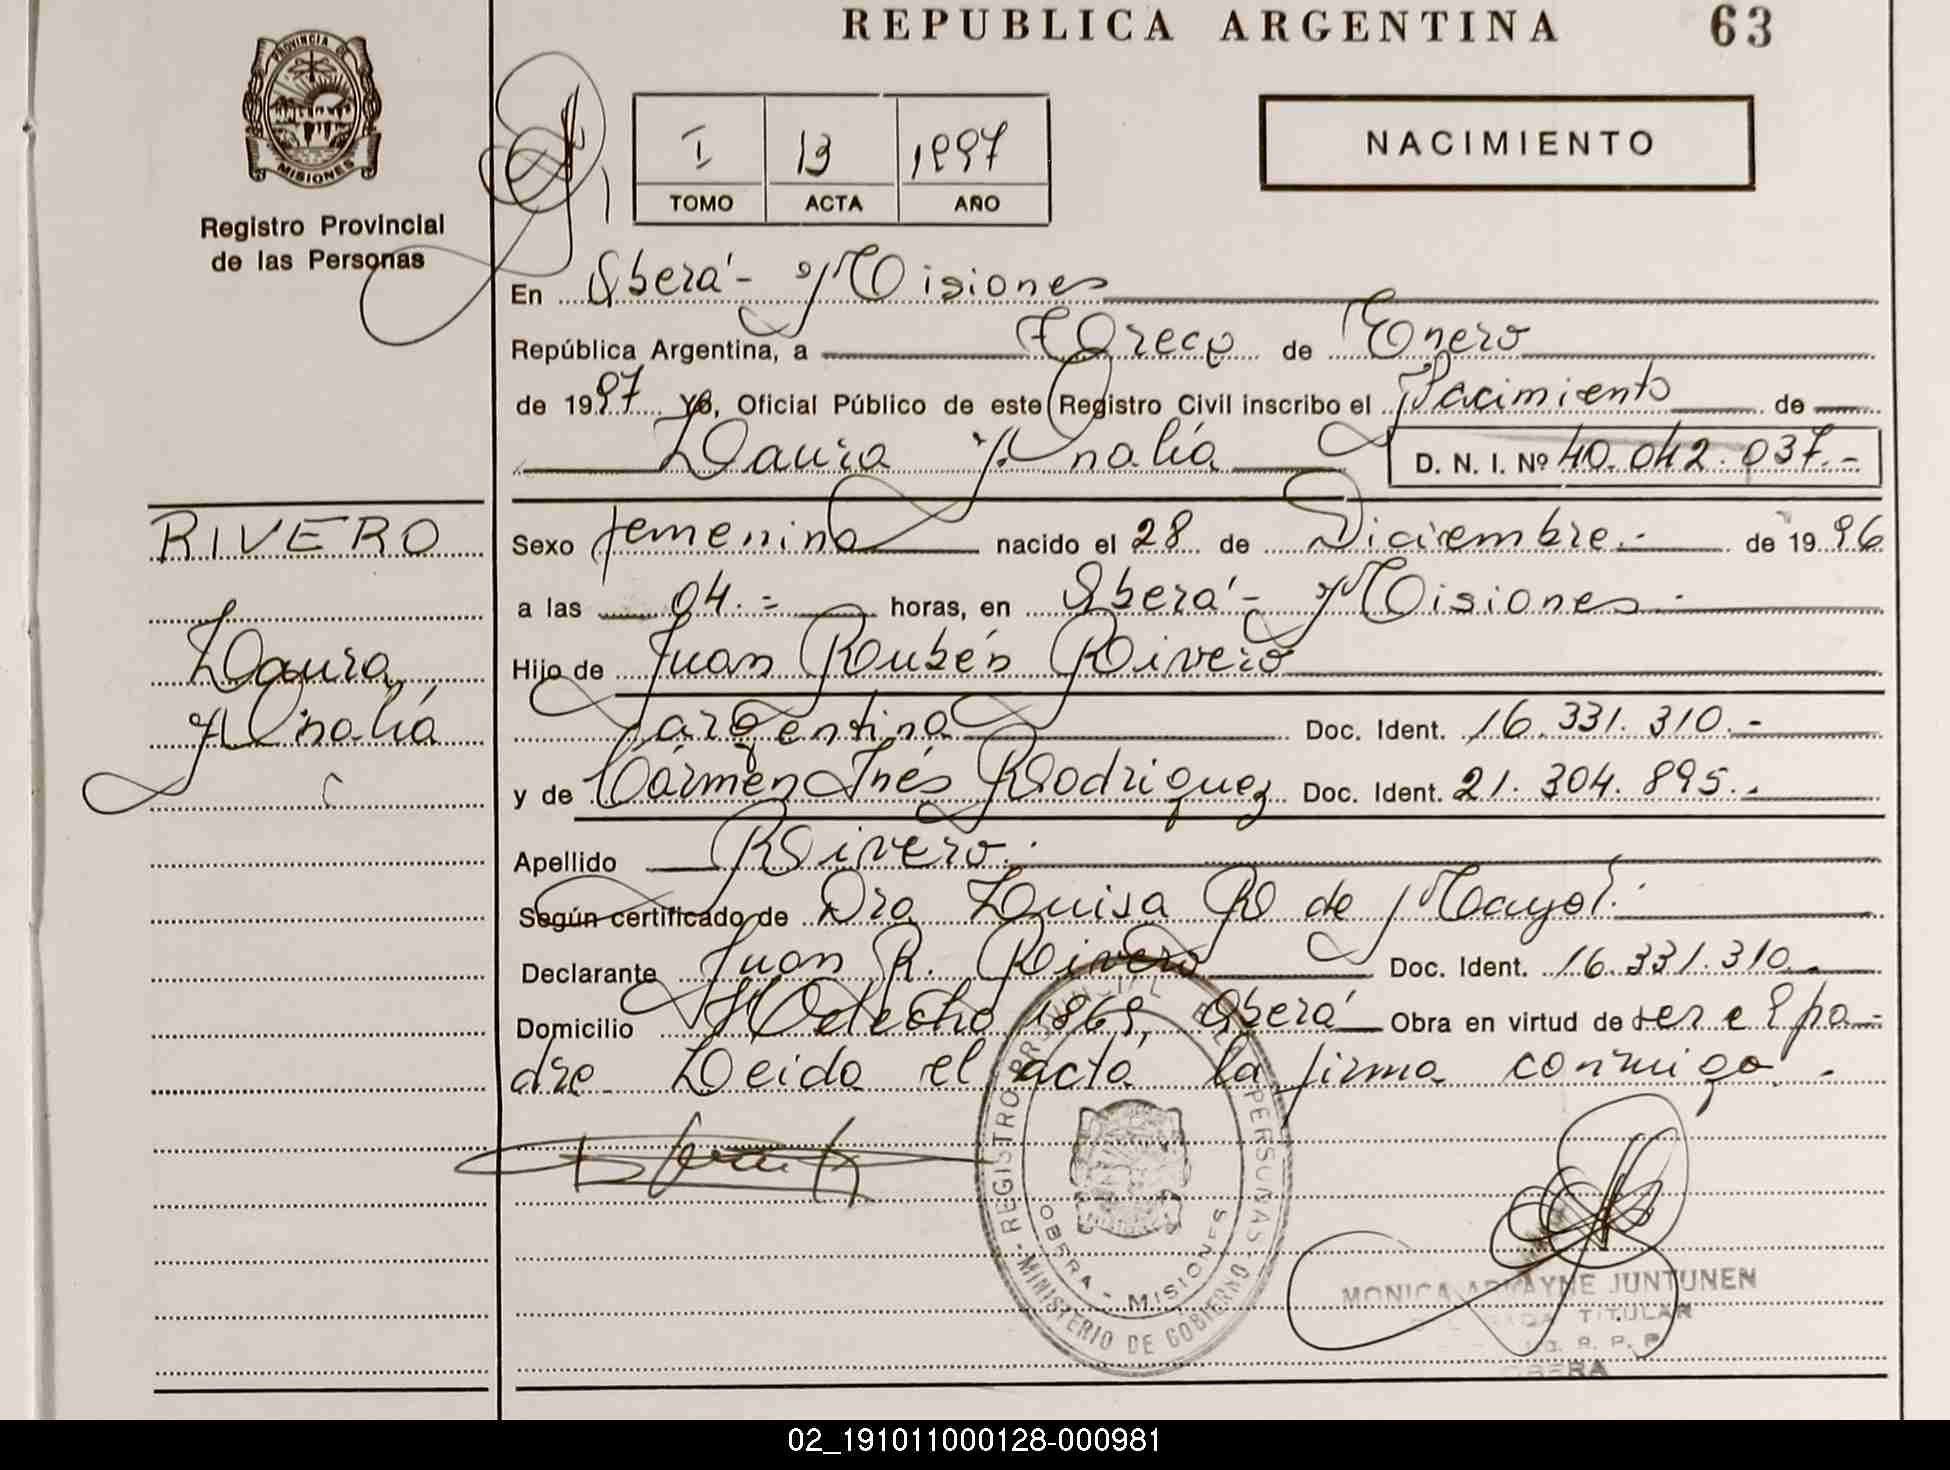 REPUBLICA ARGENTINA 63
PROVINCIA DE
MISIONES
Registro Provincial
de las Personas
I 13 1997
TOMO ACTA AÑO
NACIMIENTO
En Oberá - Misiones
República Argentina, a Trece de Enero
de 1997 yo, Oficial Público de este Registro Civil inscribo el Nacimiento de
Laura Analía D. N. I. Nº 40.042.037.-
RIVERO
Laura
Analía
Sexo femenino nacido el 28 de Diciembre.- de 1996
a las 04.- horas, en Oberá - Misiones.-
Hijo de Juan Rubén Rivero
argentina Doc. Ident. 16.331.310.-
y de Cármen Inés Rodriguez Doc. Ident. 21.304.895.-
Apellido Rivero.-
Según certificado de Dra Luisa R de Mayol.-
Declarante Juan R. Rivero Doc. Ident. 16.331.310.-
Domicilio 1869, Oberá Obra en virtud de ser el pa-
dre Leida el acta la firma conmigo.-
REGISTRO PROVINCIAL PERSONAS - MINISTERIO DE GOBIERNO
OBERA - MISIONES
MONICA JUNTUNEN
TITULAR
R. P. P.
OBERA
02_191011000128-000981